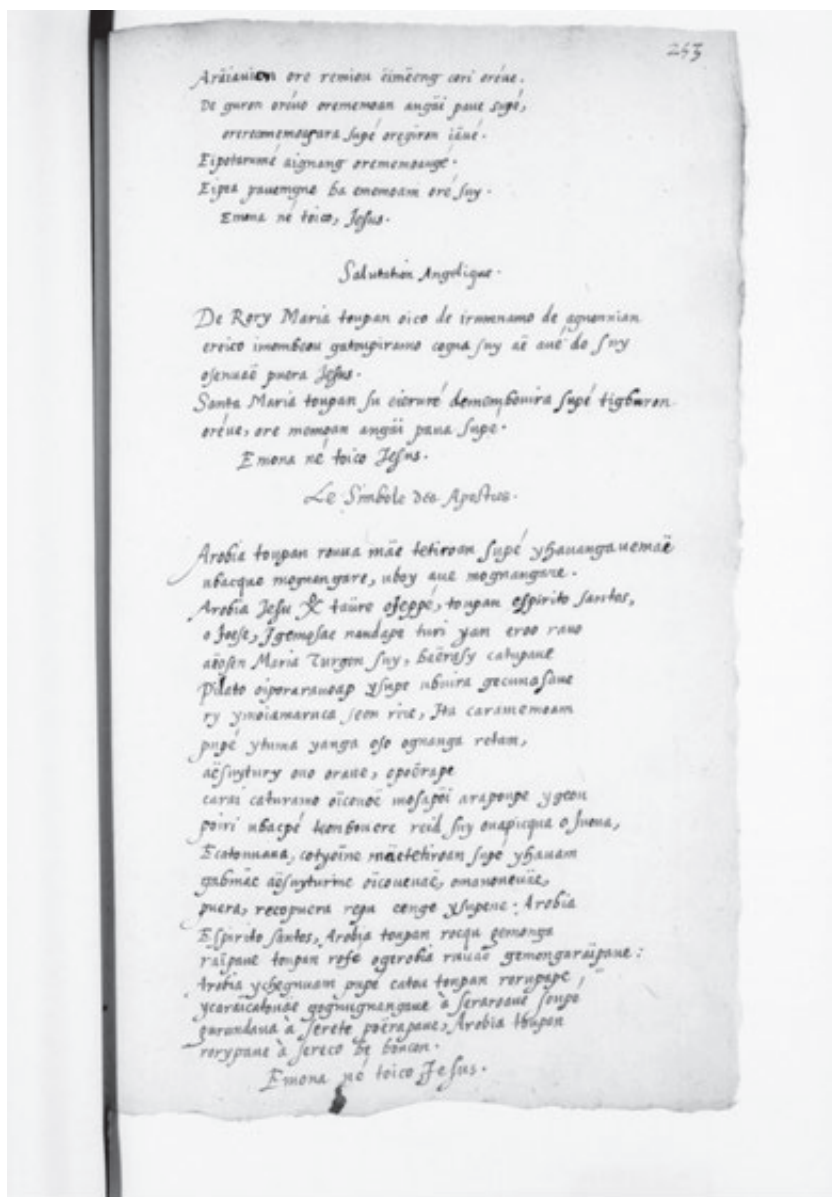 253
Arãiauion ore remiou eimëeng cori oréue.
De guron oréuo orememoan angäi paue supé,
orerecomemoaçara supé oregiron iäué.
Eipotarumé aignang orememoangé.
Eipea pauemgne ba ememoam oré suy.
Emona né toico, Jesus.
Salutation Angelique.
De Rory Maria toupan oico de irumnamo de agnonnian
ereico imombeou gatoupiramo cogna suy aë aué de suy
osenuaë puera Jesus.
Santa Maria toupan su cieruré demembouira supé tigburon
oréue, ore memoan angäi paua supe.
Emona né toico Jesus.
Le Simbole des Apostres.
Arobia toupan rouua mäe tetiroan supé yhauangauemaë
ubacque mognangare, uboy aue mognangare.
Arobia Jesu taüre oseppé, toupan espirito santos,
o Joese, Jgemosae nandape turi yan eroo rauo
aëosen Maria Turgon suy, baërasy catupaue
Pilato oiporarauoap ysupe ubuira gecunosaue
ry ymoiamaruca seon rire, Jta caramemoam
pupé ytuma yanga oso ognanga retam,
aësuytury ouo oraue, opoërape
carai caturamo oïcouoë mosapöi araponpe ygeou
poiri ubacpé teonbouere reid suy ouapicqua o Juoua,
Ecatouuaua, cotyoïne mäetetiroan supé yhauam
gabmäe aësuyturine oïcoueuaë, omanoneuäe,
puera, recopuera repu cenge ysupene. Arobia
Espirito santos, Arobia toupan rocqu gemonga
raïpaue toupan rosé ogerobia rauaë gemongaraïpaue:
Arobia ychegnuam pupé catou toupan rorupape,
ycaraïcatouäe gognugnangaue à seraroaue soupé
gurundaua à serete poërapaue, Arobia toupan
rorypaue à sereco be boucon.
Emona né toico Jesus.